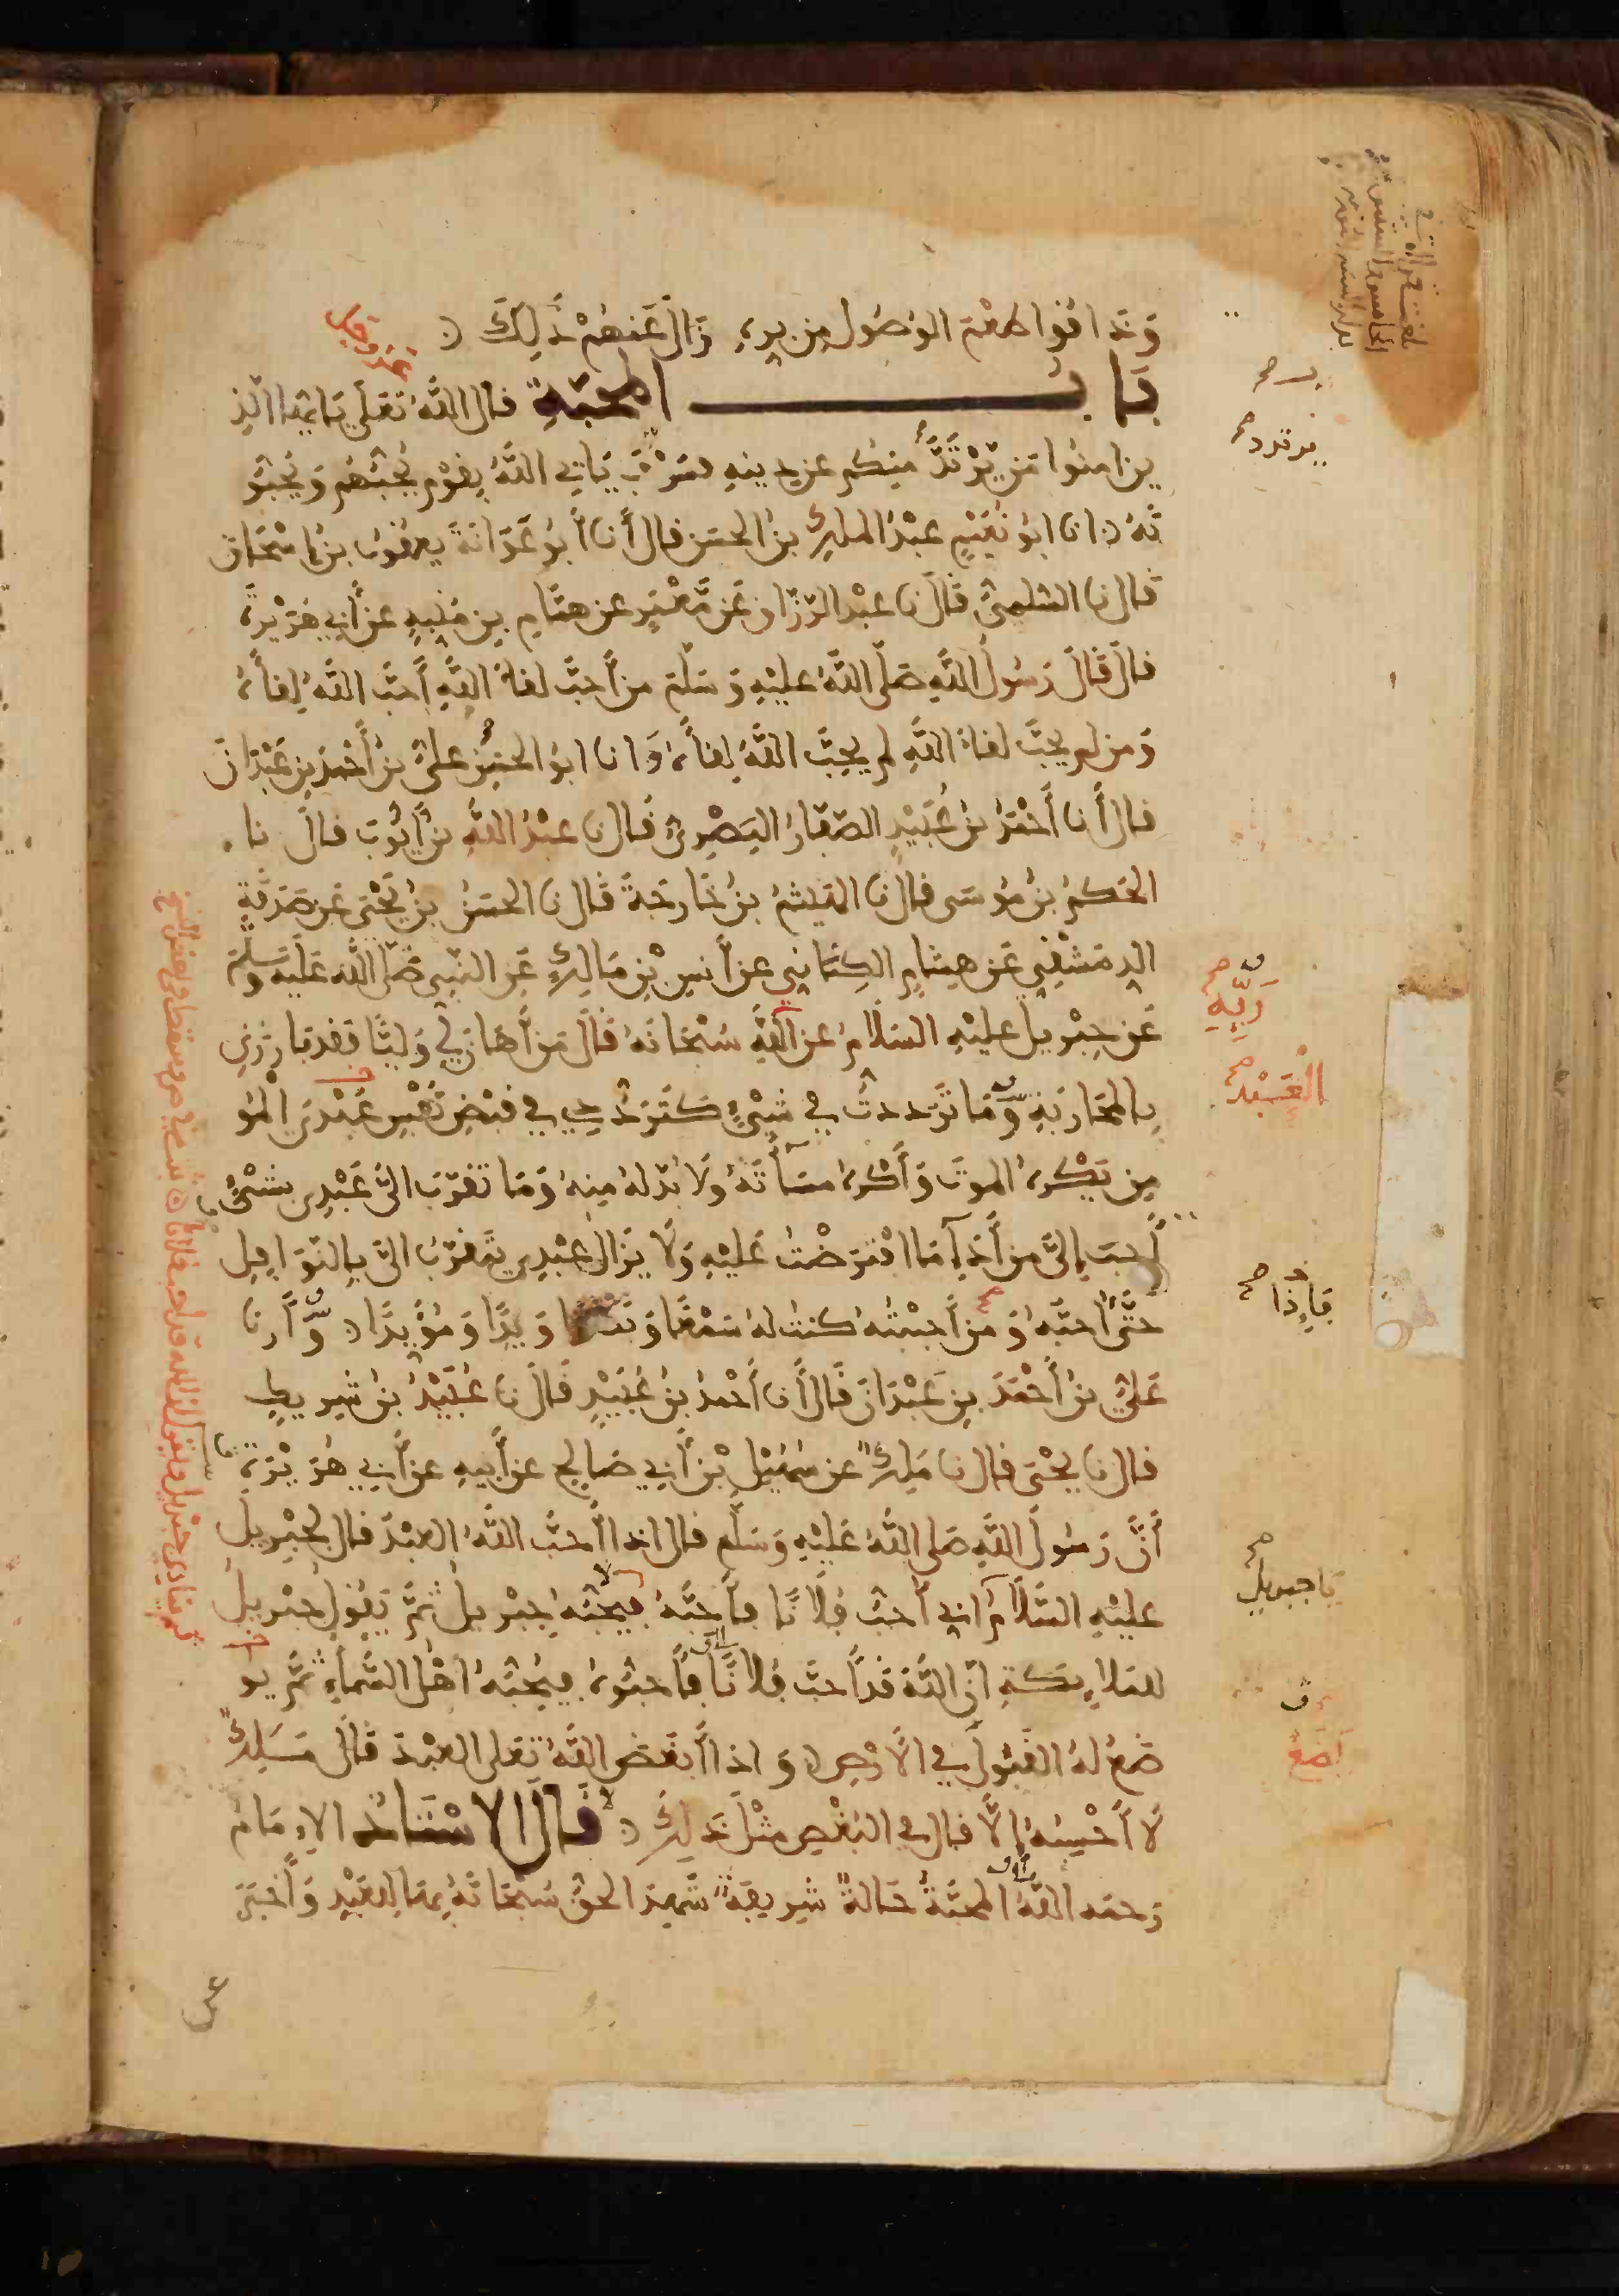 وَذَاقُوا طَعْمَ الوُصُولِ مِن بِرِّهِ زَالَ عَنهُمْ ذَلِكَ
بَابُ المحبّةِ قال اللّهُ تعلى يَا يّها الّذِ
ين امنوا مَن يّرْتَدّ مِنكم عن دينِهِ فسَوْفَ يَاتِي اللّهُ بِقوْمٍ يُحبّهُم وَيُحبّو
نَهُ انا ابو نُعَيْمٍ عبْدُ الملِكِ بنُ الحسَن قال أَنا أَبو عَوَانَةَ يعقوبُ بنُ إسْحَاقَ
قال نا السّلمِيّ قَالَ نا عبْدُ الرّزّاقِ عَن مَّعْمَرٍ عن همّامِ بِن مُنبِهٍ عن أَبي هُرَيْرَةَ
قالَ قَالَ رَسُولُ اللّهِ صَلّى اللّهُ عليْهِ وَسَلّمَ من أَحبَّ لقاءَ اللّهِ أَحَبَّ اللّهُ لِقاءَهُ
وَمن لم يحبَّ لقاءَ اللّهِ لم يحِبَّ اللّهُ لِقاءَهُ وَانا ابو الحسَن عليّ بنُ أَحْمدَ بنِ عَبْدَانَ
قال أَنا أَحْمَدُ بنُ عُبَيْدٍ الصّفّارُ البَصْرِيّ قَال نا عبْدُ اللّهِ بنُ أَيّوبَ قالَ نا
الحَكمُ بنُ مُوسَى قال نا الهيثمُ بنُ خَارِجَةَ قَال نا الحسَنُ بنُ يَحْيى عَن صَدَقَةٍ
الدِمَشْقِيِّ عَن هِشَامِ الكِنَانِيِّ عن أَنسِ بْنِ مَالِكٍ عَنِ النّبِي صَلّى اللّه عَليْهِ وَسَلّمَ
عَن جِبْرِيل عليْهِ السَلَامُ عن اللّهِ سُبْحَانَهُ قَالَ مَنْ أَهَانَ لِي وَلِيًّا فَقد بَارَزَنِي
بِالمحَارَبَةِ وَّمَا تَرَددتُ في شَيْءٍ كَتَرَدُّدِي في قبْضِ نَفْسِ عَبْدِيَ الْمُو
مِنِ يَكْرهُ الموتَ وَأَكْرهُ مسَاءَتَهُ وَلَا بُدّ لهُ مِنهُ وَمَا تَقرّبَ الَيَّ عَبْدِي بشَيْءٍ
أَحبَّ إِليَّ من أَدَاءِ مَا افْتَرَضْتُ عَليْهِ وَلَا يَزَالُ عبْدِي يتَقرّبُ اليَّ بِالنّوَافِلِ
حتَّى أُحبّهُ وَمن أَحببْتُه كنتُ لهُ سَمْعًا وَبَصَرًا وَيَدًا وَمُؤَيّدًا وَّأَرنا
عَليّ بنُ أَحْمَدَ بنِ عَبْدَانَ قَالَ أَنا أَحْمدُ بنُ عُبَيْدٍ قَالَ نا عُبَيْدُ بنُ شَرِيكٍ
قال نا يحْيَى قال نا مَلِكٌ عن سُهَيْلِ بْنِ أَبي صَالِحٍ عن أَبِيهِ عن أَبِي هُرَيْرَةَ
أَنَّ رَسُولَ اللّهِ صَلى اللّهُ عَليْهِ وَسَلّم قال اذا أَحَبَّ اللّهُ العبْدَ قال لجِبْرِيل
عليْهِ السَّلَامُ اني أُحبُّ فُلَانًا فأَحبَّهُ فيحبّه جبْرِيلُ ثمَّ يَقولُ جبْرِيلُ
للمَلاَئِكةِ انّ اللّهَ قد أَحبَّ فُلَانًا فأَحبّوهُ فيُحبّه اهْل السَّماءِ ثمَّ يو
ضَعُ لهُ القَبُولُ في الأَرْضِ وَاذا أَبْغَضَ اللّهُ تعلى العبْدَ قَالَ مَالِكٌ
لَا أَحْسِبُهُ إِلَّا قال في البُغْضِ مثْلَ ذَلِكَ قَالَ الاسْتَاذُ الاِمَامُ
رَحمَه اللّهُ المحبّةُ حَالةٌ شَرِيفةٌ شَهِدَ الحقُّ سُبْحَانَهُ بِهَا لِلعَبْدِ وَأَخبَرَ
رَبِّهِ
العَبْد
فَإِذا
يا جبريل